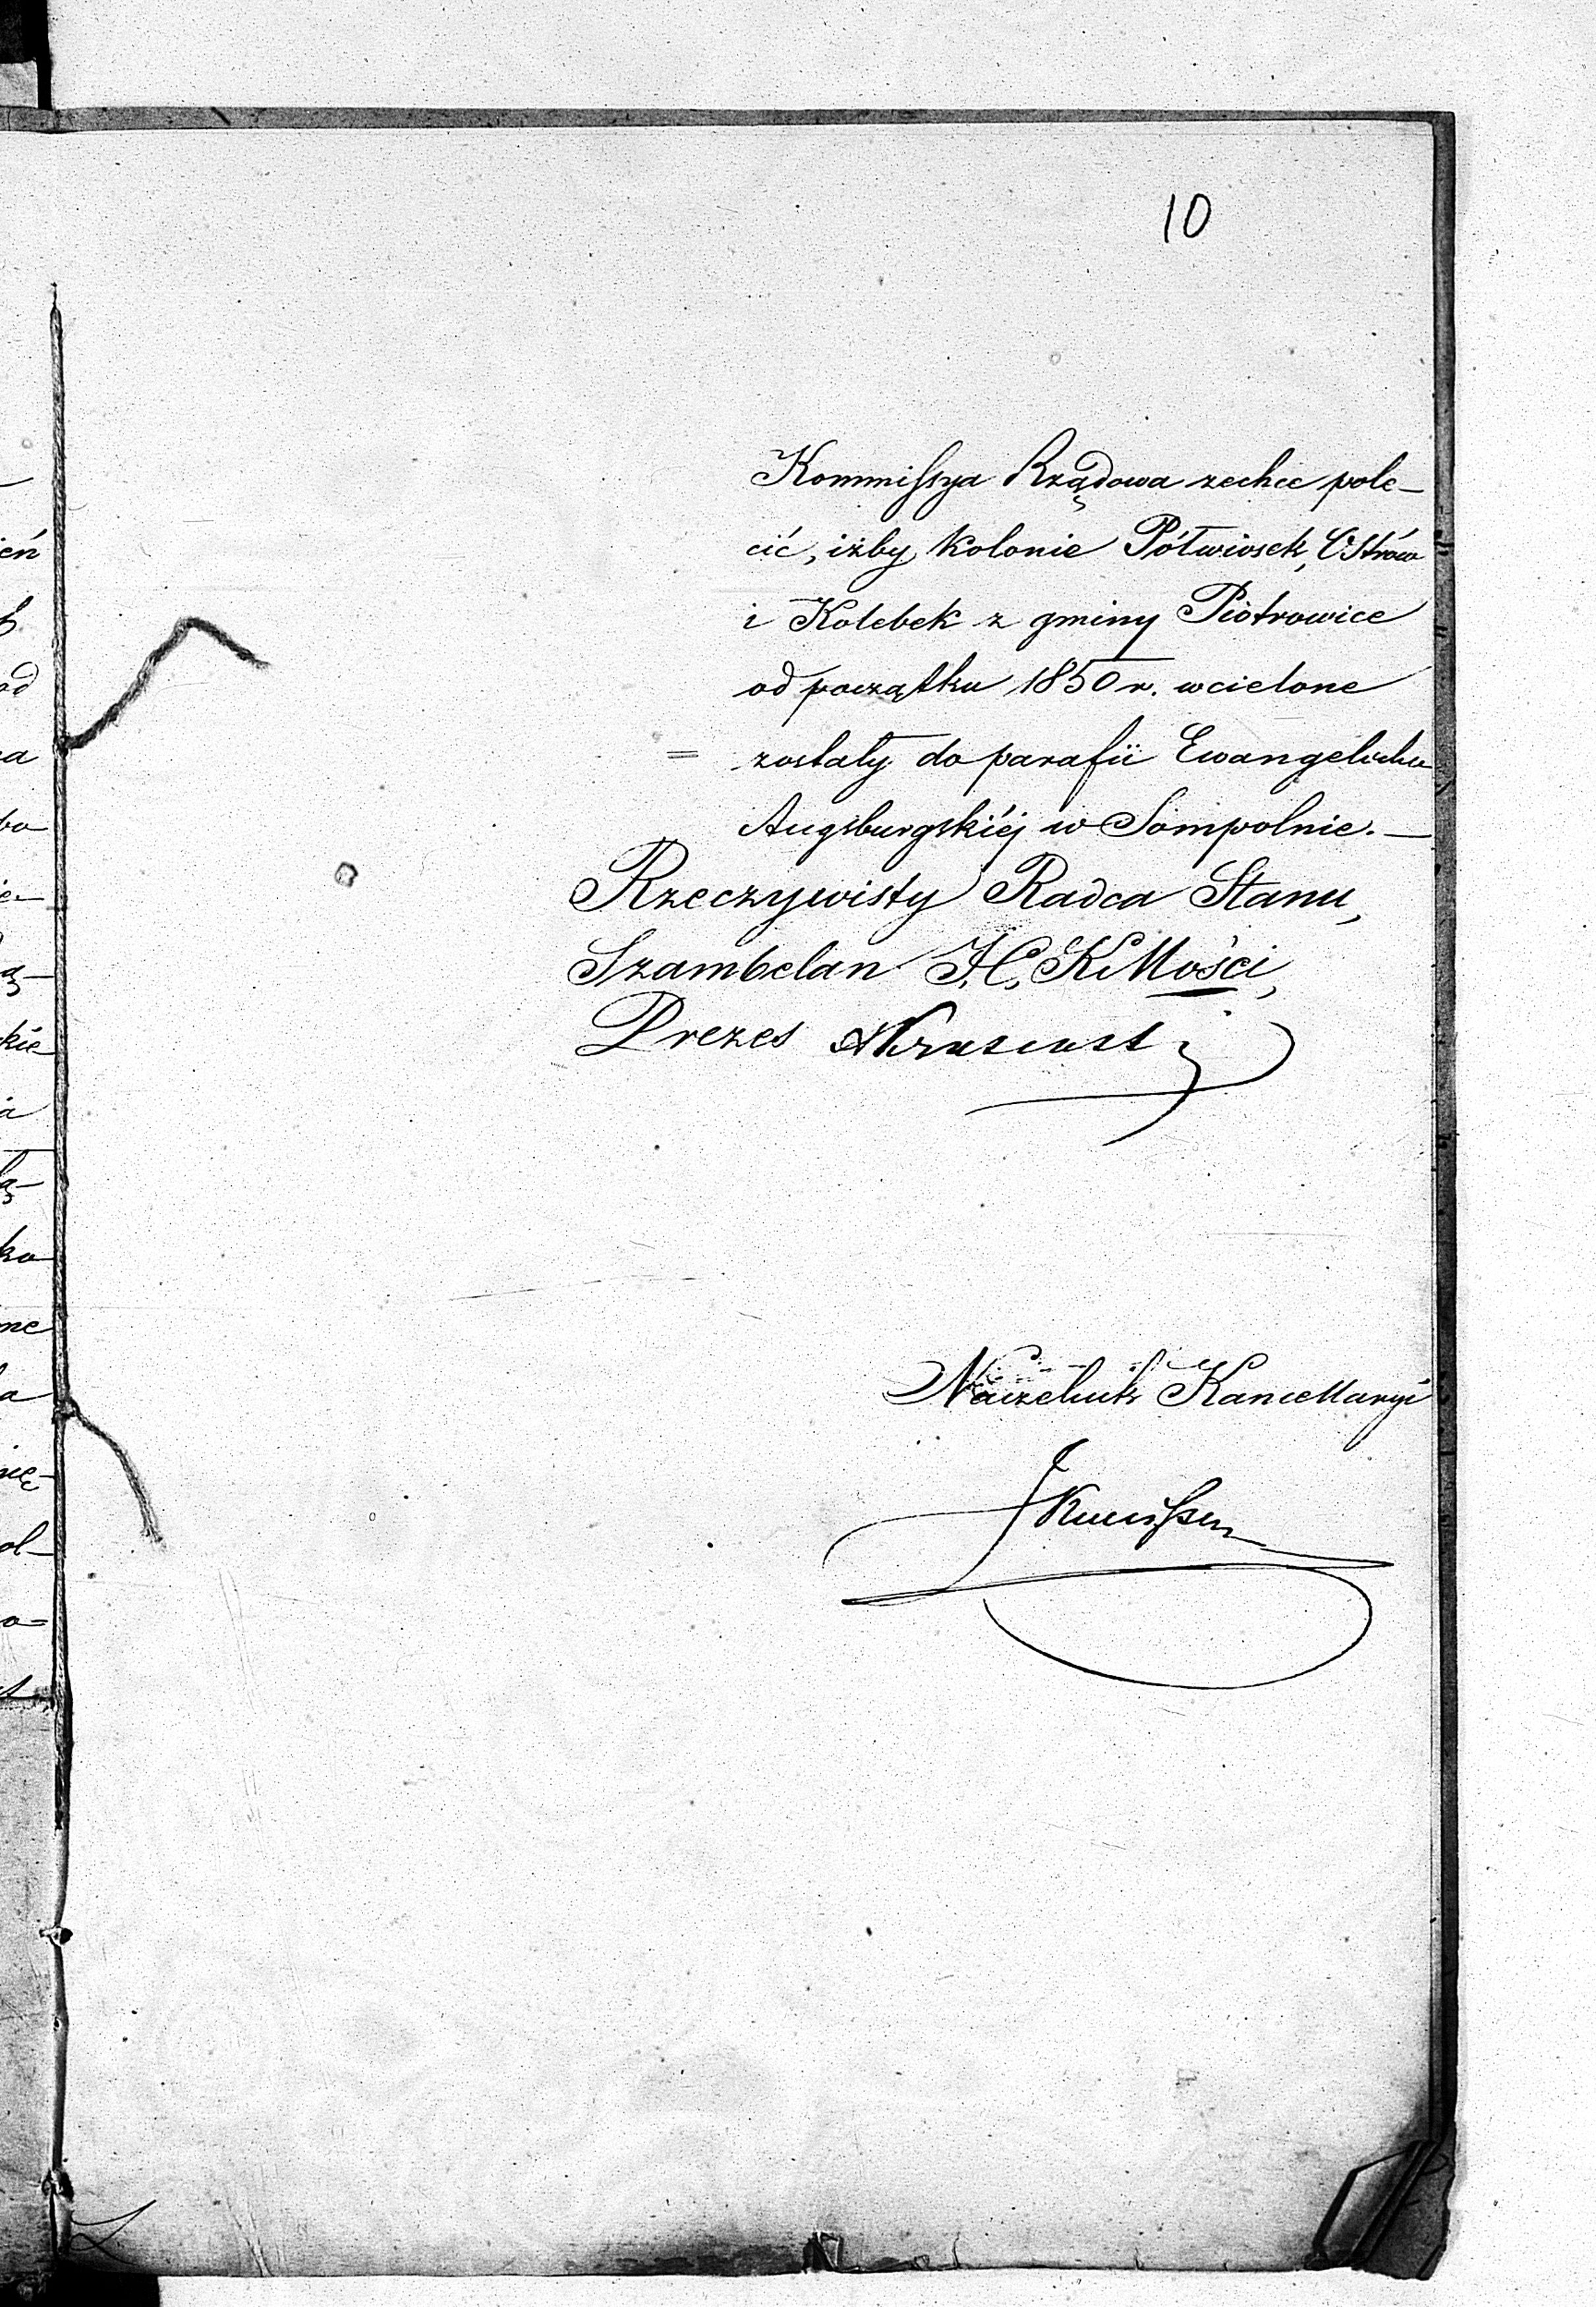 10
Kommissya Rządowa zechce pole-
cić, iżby kolonie Półwiosek, Ostrów
i Kolebek z gminy Piotrowice
od początku 1850 r. wcielone
= zostały do parafii Ewangelicko
Augsburgskiéj w Sompolnie.—
Rzeczywisty Radca Stanu,
Szambelan J. C. K. Mości,
Prezes
Naczelnik Kancellaryi